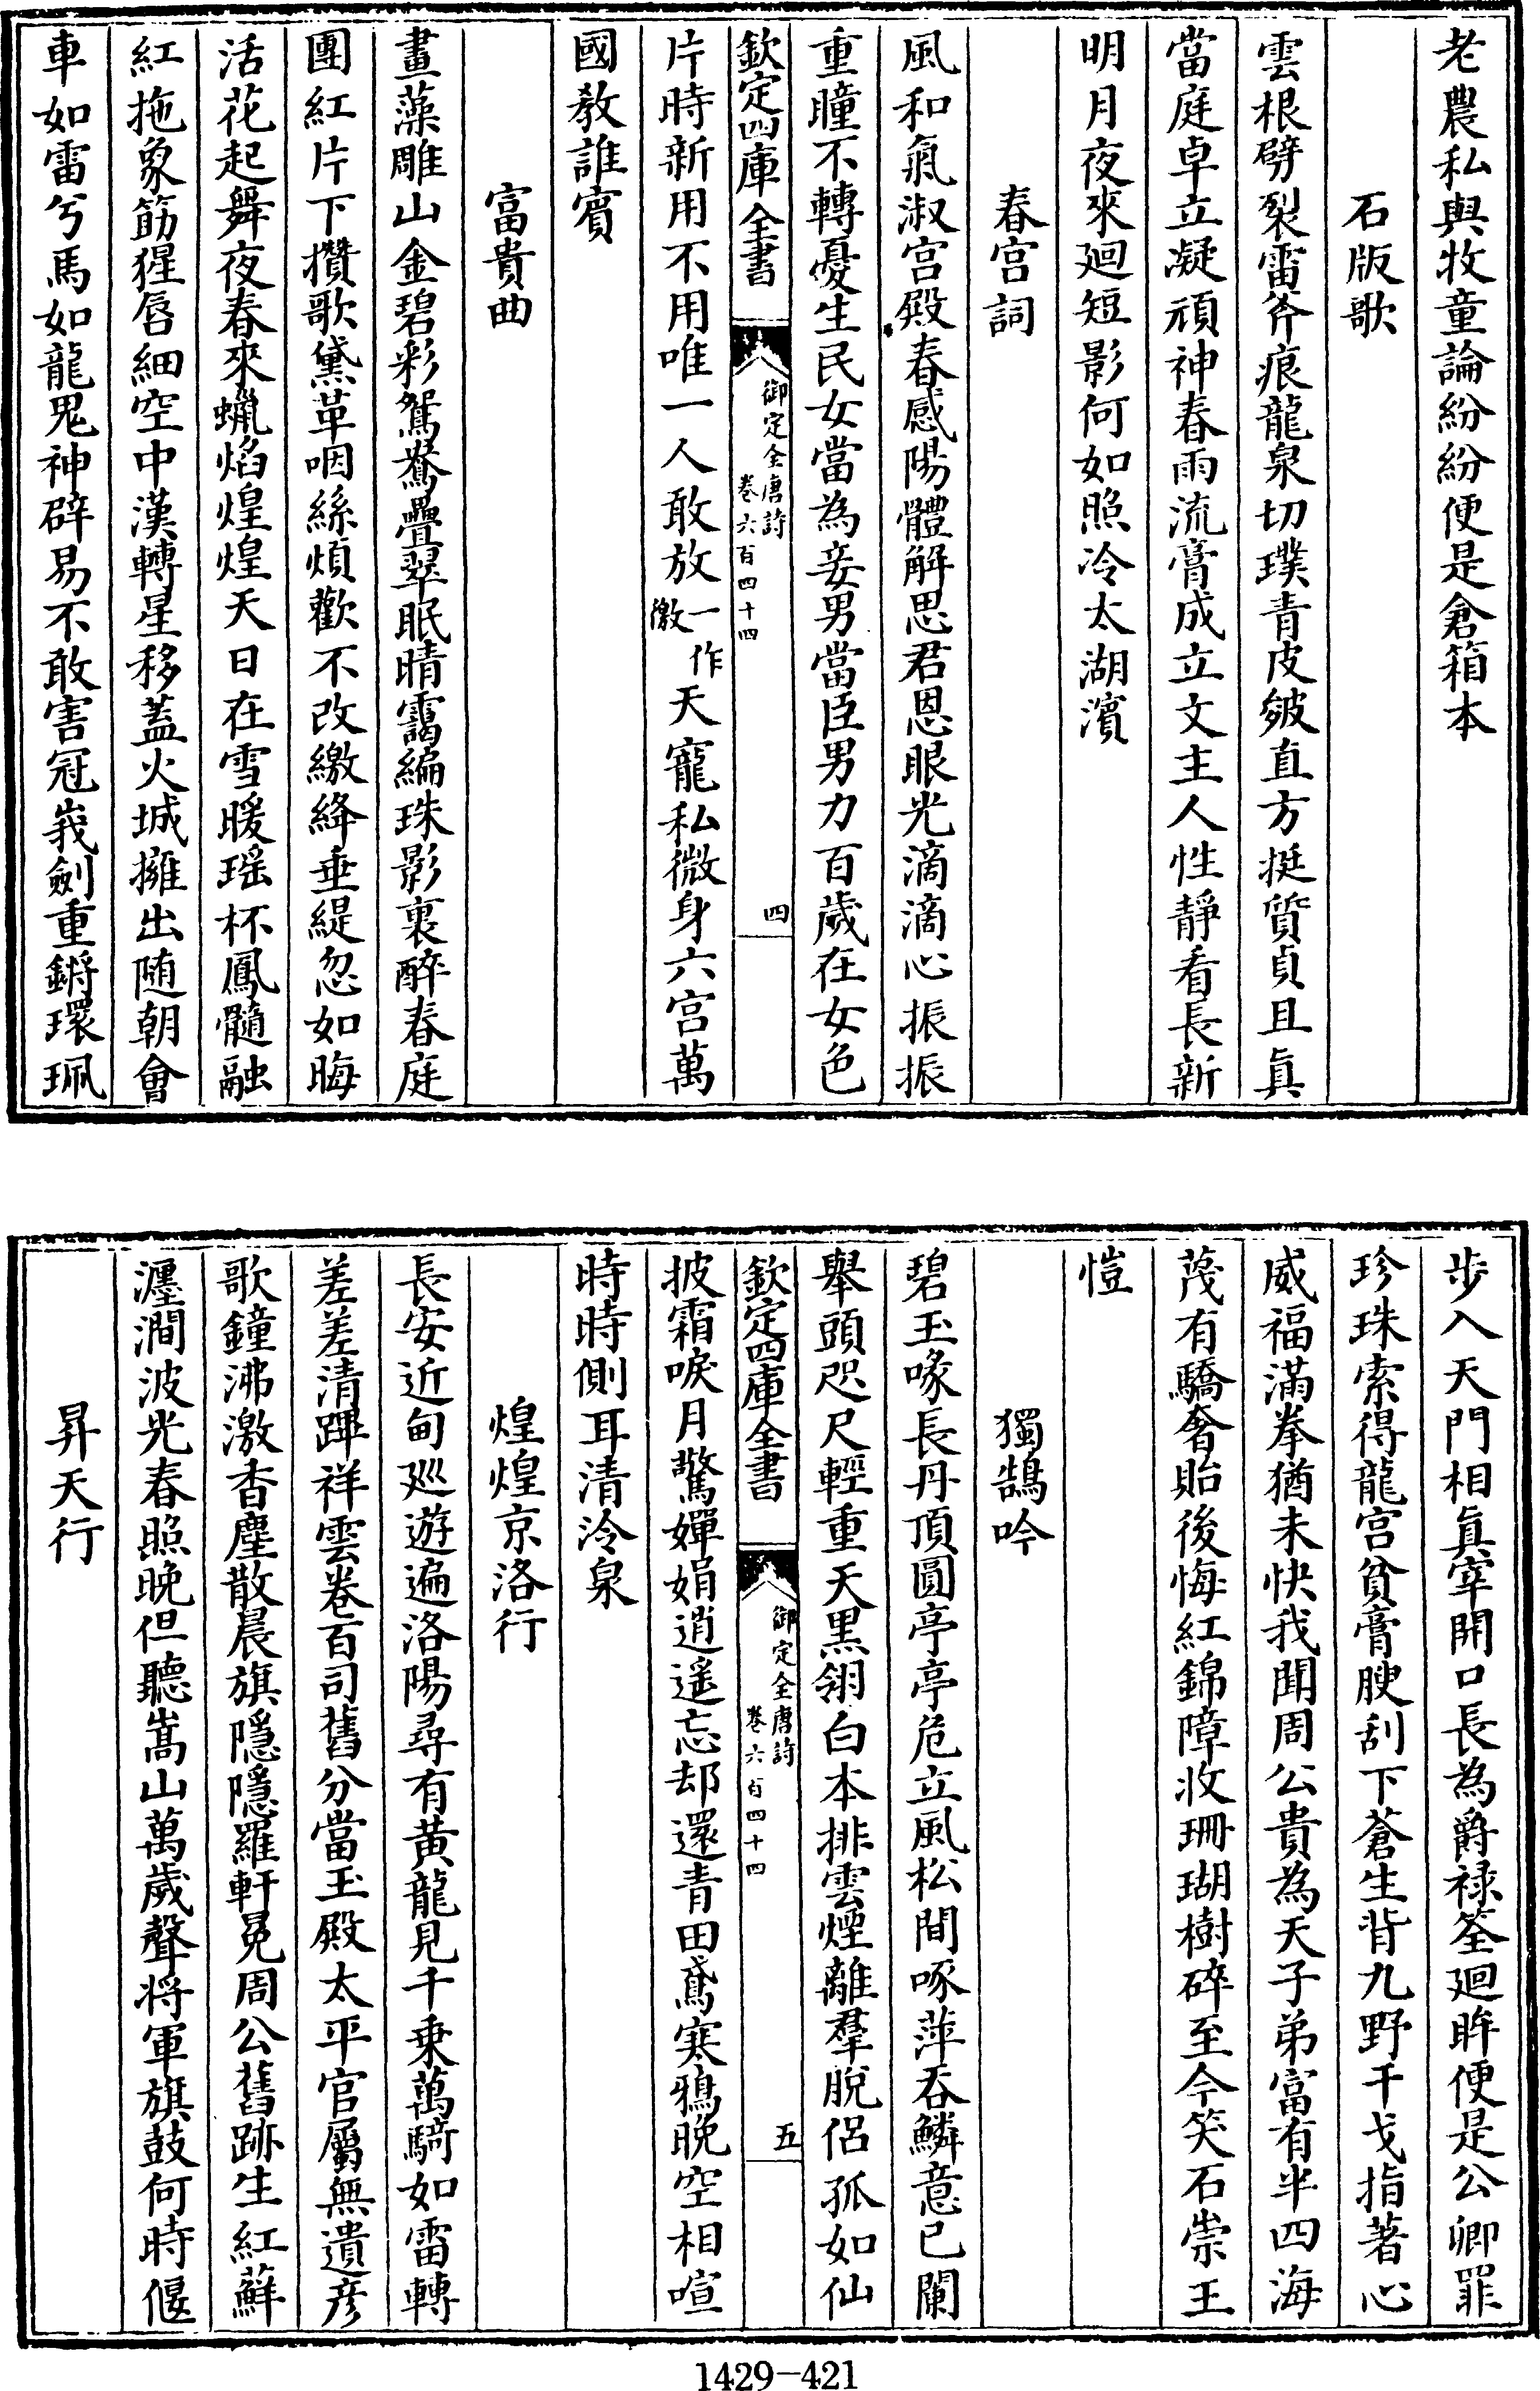 老農私與牧童論紛紛便是倉箱本
石版歌
雲根劈裂雷斧痕龍泉切璞青皮皴直方挺質貞且真
當庭卓立凝頑神春雨流膏成立文主人性靜看長新
明月夜來廻短影何如照冷太湖濱
春宫詞
風和氣淑宫殿春感陽體解思君恩眼光滴滴心振振
重瞳不轉憂生民女當為妾男當臣男力百歲在女色
欽定四庫全書
御定全唐詩
卷六百四十四
四
片時新用不用唯一人敢放一作激天寵私微身六宫萬
國教誰賓
富貴曲
畫藻雕山金碧彩鴛鴦疊翠眠晴靄編珠影裏醉春庭
團紅片下攢歌黛革咽絲煩歡不改繳絳垂緹忽如晦
活花起舞夜春來蠟焰煌煌天日在雪暖瑶杯鳳髓融
紅拖象筯猩唇細空中漢轉星移蓋火城擁出随朝會
車如雷兮馬如龍鬼神辟易不敢害冠峩劍重鏘環珮
步入天門相真宰開口長為爵禄筌廻眸便是公卿罪
珍珠索得龍宫貧膏腴刮下蒼生背九野干戈指著心
威福滿拳猶未快我聞周公貴為天子弟富有半四海
蔑有驕奢貽後悔紅錦障收珊瑚樹碎至今笑石崇王
愷
獨鵠吟
碧玉喙長丹頂圓亭亭危立風松間啄萍吞鱗意已闌
舉頭咫尺輕重天黑翎白本排雲煙離羣脫侣孤如仙
欽定四庫全書
御定全唐詩
卷六百四十四
五
披霜唳月驚嬋娟逍遥忘却還青田鳶寒鴉晚空相喧
時時側耳清泠泉
煌煌京洛行
長安近甸廵遊遍洛陽尋有黄龍見千乗萬騎如雷轉
差差清蹕祥雲卷百司舊分當玉殿太平官屬無遺彦
歌鐘沸激香塵散晨旗隱隱羅軒冕周公舊跡生紅蘚
瀍澗波光春照晚但聽嵩山萬歲聲將軍旗鼓何時偃
昇天行
1429-421